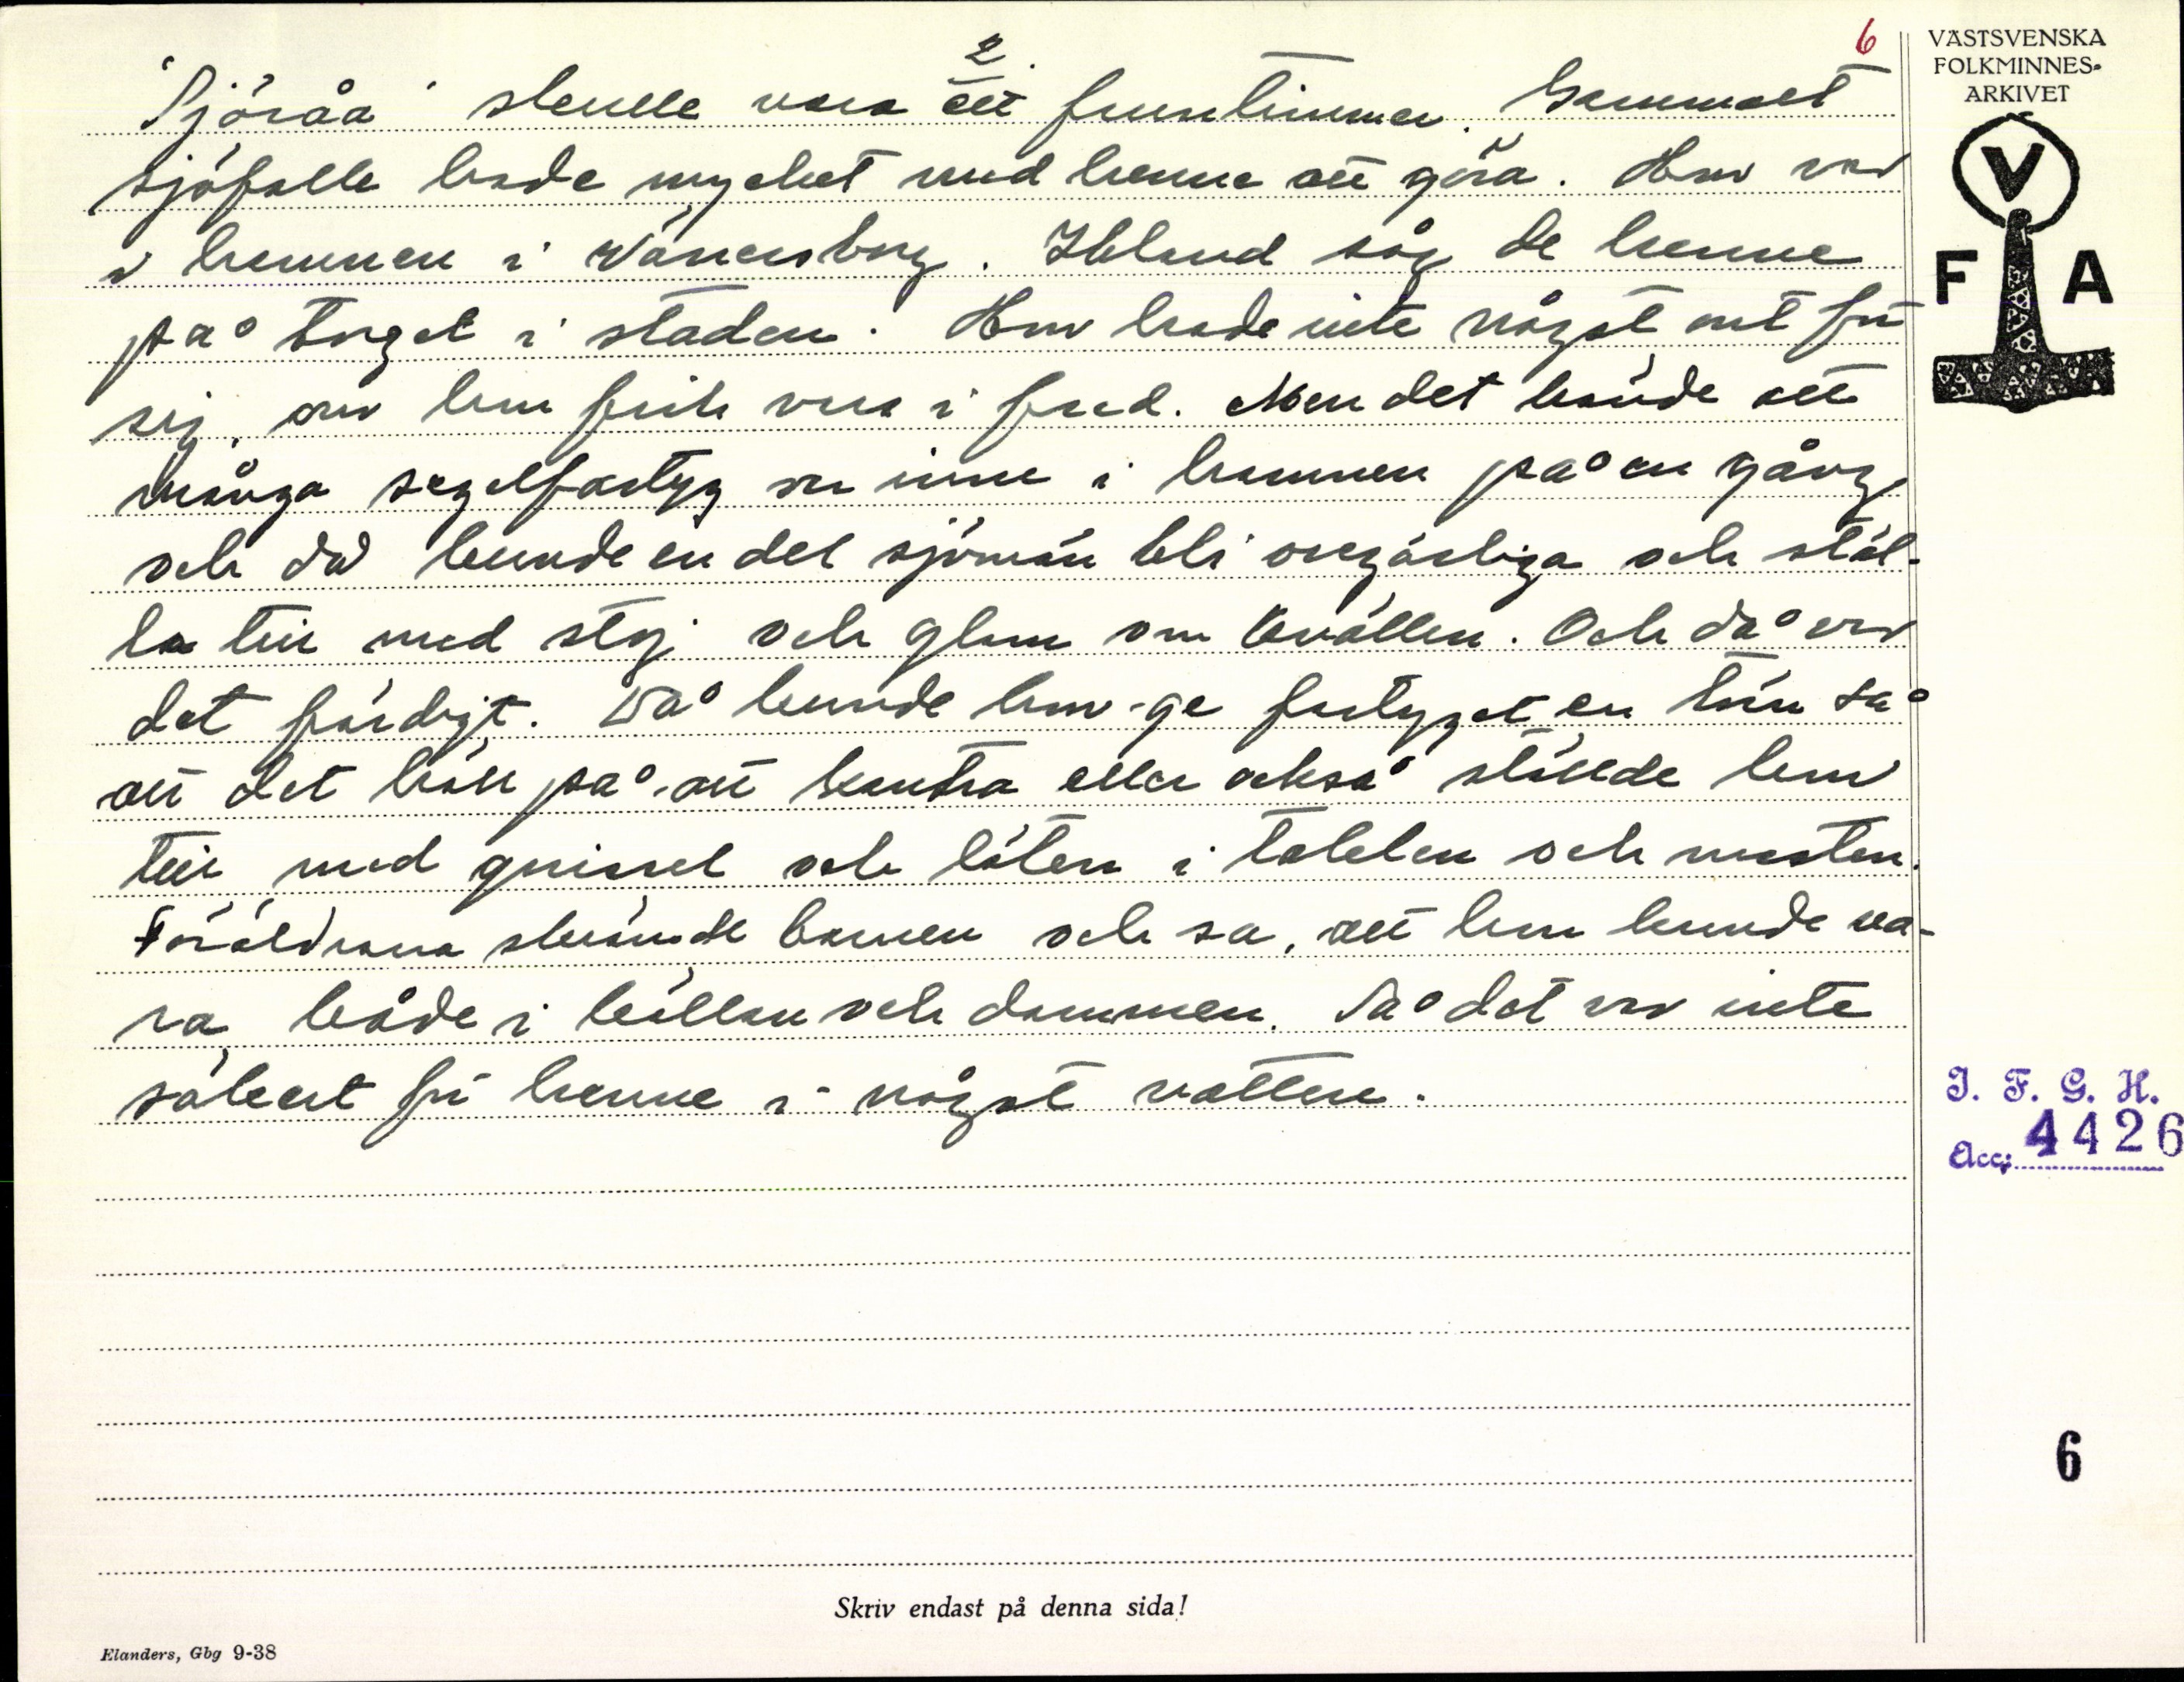 2.
6
"Sjöråa" skulle vara ett fruntimmer. Gammalt
sjöfolk hade mycket med henne att göra. Hon var
i hamnen i Vänersborg. Ibland såg de henne
på torget i staden. Hon hade inte något ont för
sig, om hon fick vara i fred. Men det hände att
många segelfartyg var inne i hamnen på en gång
och då kunde en del sjömän bli oregärliga och stäl-
la till med stoj och glam om kvällen. Och då var
det färdigt. Då kunde hon ge fartyget en törn så
att det höll på att kantra eller också ställde hon
till med gnissel och låten i tackel och masten.
Föräldrarna skrämde barnen och sa, att hon kunde va-
ra både i källan och dammen. Så det var inte
säkert för henne i något vatten.
VÄSTSVENSKA
FOLKMINNES-
ARKIVET
V
F A
I. F. G. H.
Acc: 4426
6
Skriv endast på denna sida!
Elanders, Gbg 9-38